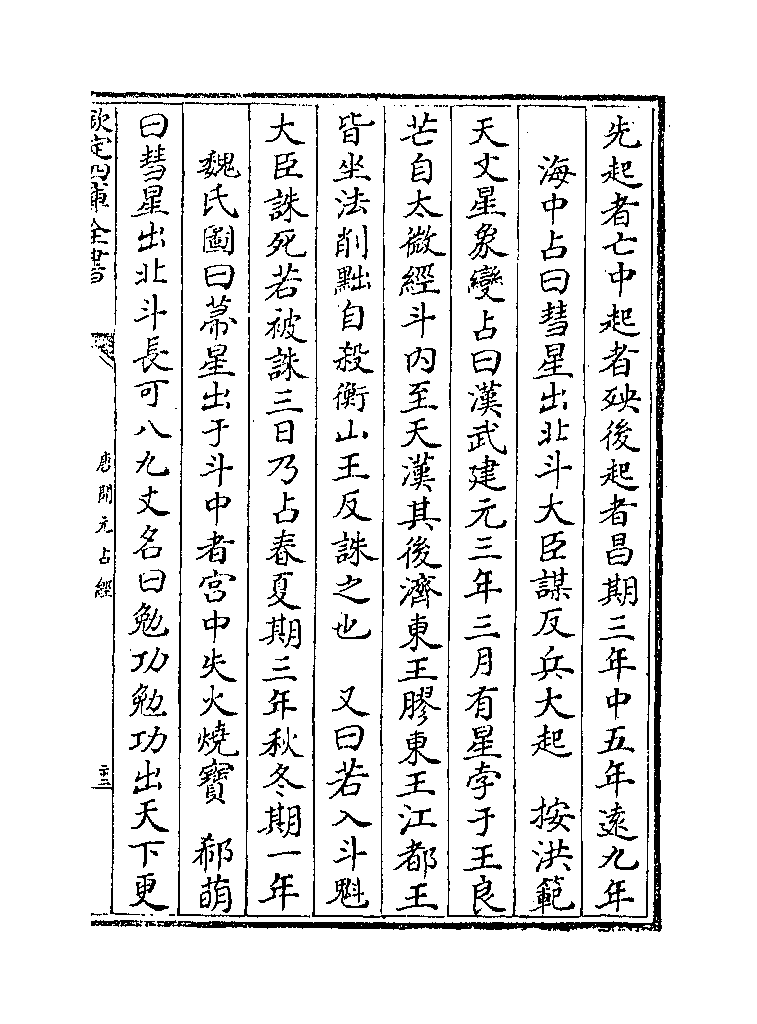 先起者亡中起者殃後起者昌期三年中五年遠九年
海中占曰彗星出北斗大臣謀反兵大起　按洪範
天文星象變占曰漢武建元三年三月有星孛于王良
芒自太微經斗內至天漢其後濟東王膠東王江都王
皆坐法削黜自殺衡山王反誅之也　又曰若入斗魁
大臣誅死若被誅三日乃占春夏期三年秋冬期一年
魏氏圖曰蒂星出于斗中者宮中失火燒寶　郗萌
曰彗星出北斗長可八九丈名曰勉功勉功出天下更
欽定四庫全書
唐開元占經
二十三